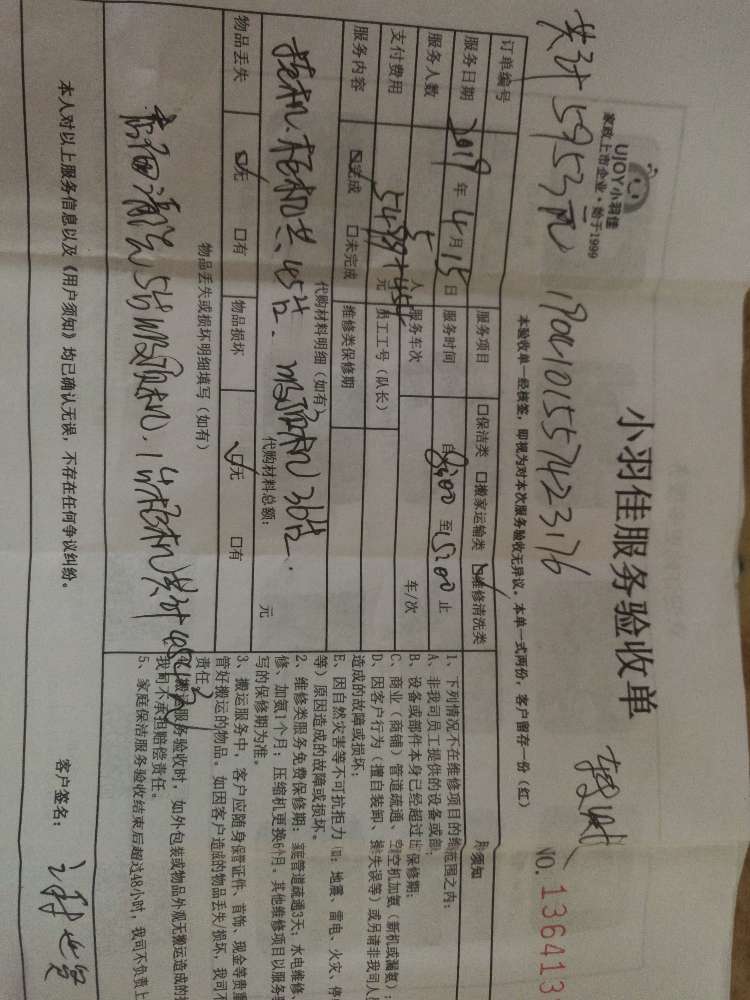 UJOY小羽佳
家政上市企业·始于1999
小羽佳服务验收单
共计5953元
19041015574223176
NO.136413
本验收单一经核签，即视为对本次服务验收无异议。本单一式两份，客户留存一份（红）
订单编号
服务项目 □保洁类 □搬家运输类 ☑维修清洗类
服务日期 2019年4月15日 服务时间 自 8:00 至 15:00 止
服务人数 5 人 服务车次 车/次
支付费用 元 员工工号（队长）
服务内容 ☑完成 □未完成 维修类保修期
代购材料明细（如有）
挂机、柜机共45台、吸顶机36台.
代购材料总额： 元
物品丢失 ☑无 □有 物品损坏 ☑无 □有
物品丢失或损坏明细填写（如有）
本人对以上服务信息以及《用户须知》均已确认无误，不存在任何争议纠纷。
客户签名：
户须知
1、下列情况不在维修项目的保修范围之内：
A、非我司员工提供的设备或部
B、设备或部件本身已经超过出保修期；
C、商业（商铺）管道疏通、空调加氨（新机或漏氨）；
D、因客户行为（擅自装卸、操作失误等）或另请非我司人员
造成的故障或损坏；
E、因自然灾害等不可抗拒力（如：地震、雷电、火灾、停
等）原因造成的故障或损坏。
2、维修类服务免费保修期：家庭管道疏通3天；水电维修
修、加氨1个月；压缩机更换6个月。其他维修项目以服务
写的保修期为准。
3、搬运服务中，客户应随身保管证件、首饰、现金等贵重
管好搬运的物品。如因客户造成的物品丢失/损坏，我司不
责任。
4、搬运服务验收时，如外包装或物品外观无搬运造成的
我司不承担赔偿责任。
5、家庭保洁服务验收结束后超过48小时，我司不负责上